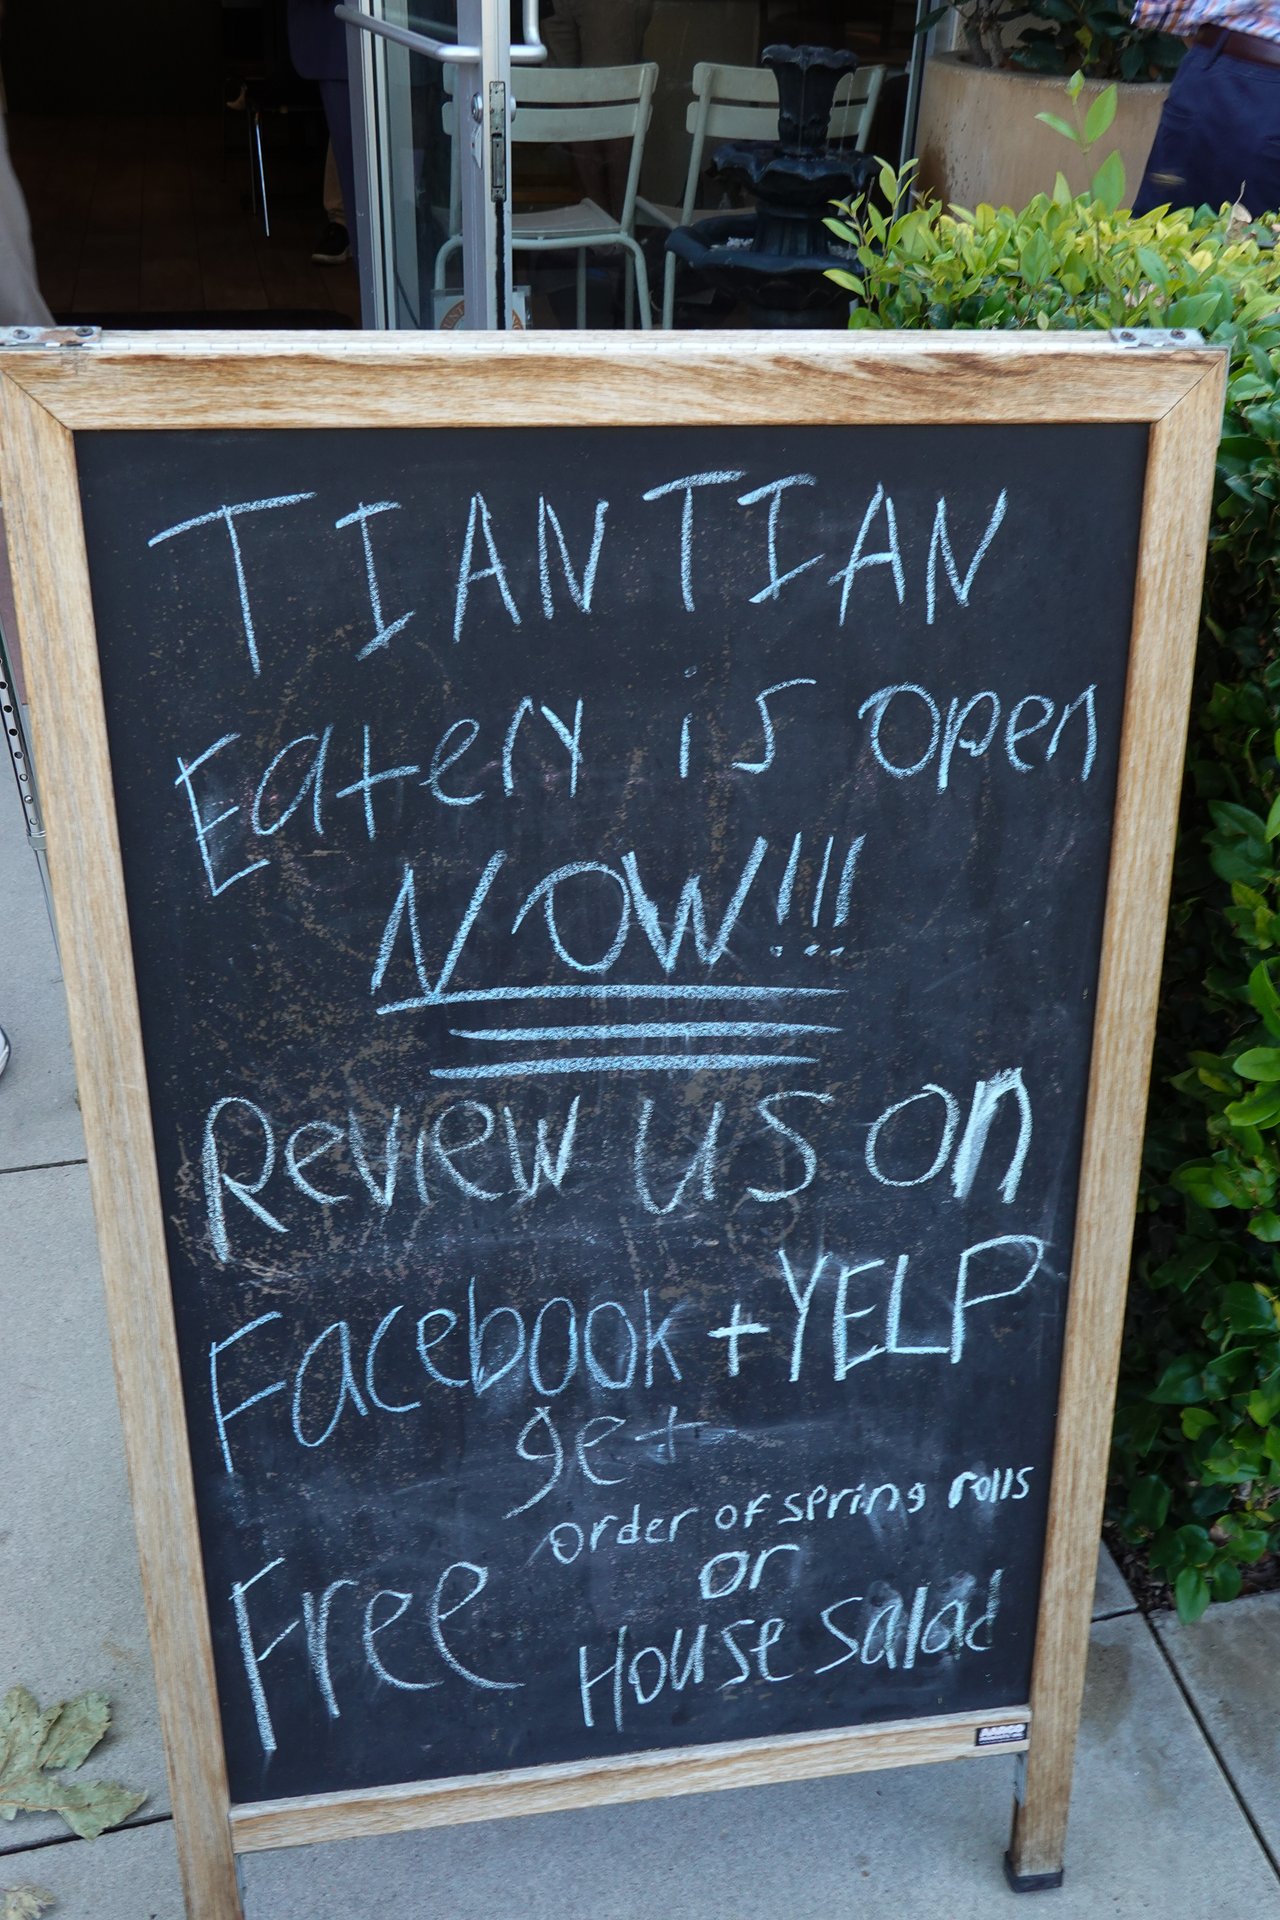 TIANTIAN
Eatery is open
NOW!!!
Review us on
Facebook + YELP
get
Free order of spring rolls
or
House salad
AARCO